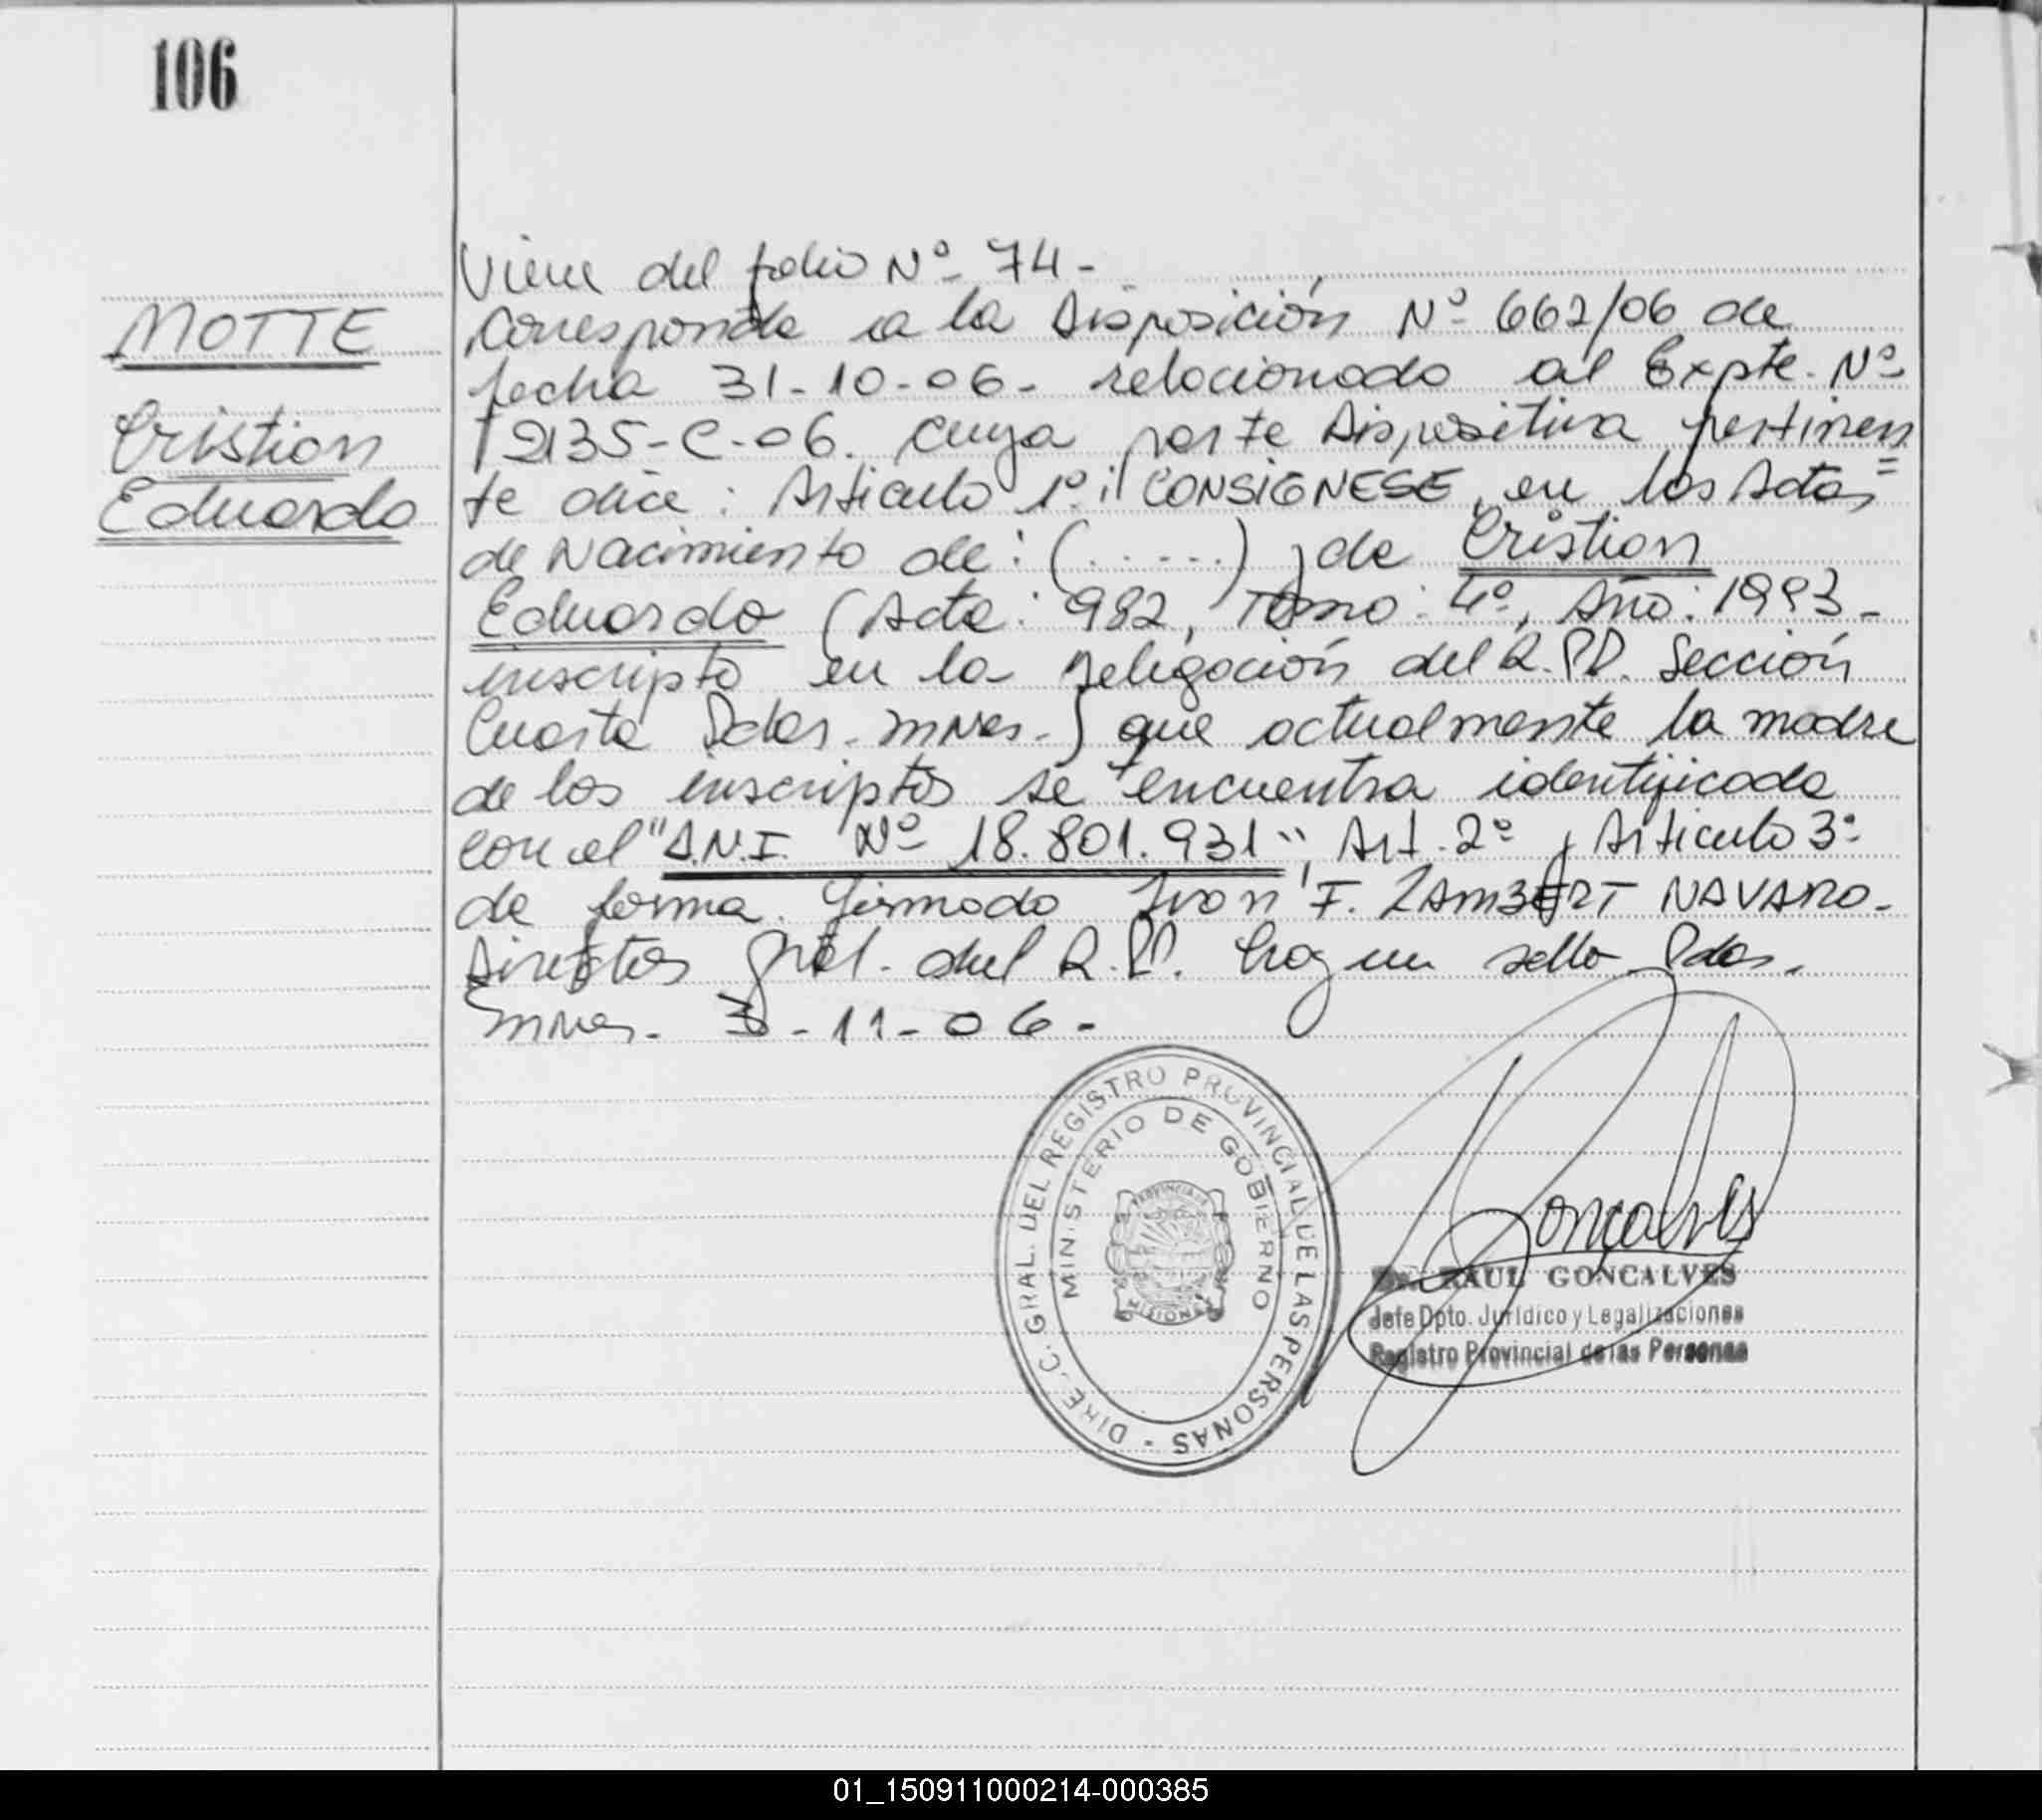 106
MOTTE
Cristian
Eduardo
Viene del folio Nº 74-
Corresponde a la Disposición Nº 662/06 de
fecha 31-10-06- relacionado al Expte. Nº
2135-C-06. cuya parte Dispositiva pertinen
te dice: Articulo 1º: "CONSIGNESE, en las Actas
de Nacimiento de: (......) y de Cristian
Eduardo (Acta: 982, Tomo: 4º, Año: 1993-
inscripto en la Delegación del R.P.P. Sección
Cuarta Pdas. Mnes.) que actualmente la madre
de los inscriptos se encuentra identificada
con el "D.N.I. Nº 18.801.931", Art. 2º y Articulo 3º
de forma. Firmado Ivan F. ZAMBERT NAVARO-
Director Gral. del R.P.P. Hay un sello Pdas.
Mnes. 3-11-06-
DIREC. GRAL. DEL REGISTRO PROVINCIAL DE LAS PERSONAS -
MINISTERIO DE GOBIERNO
PROVINCIA DE
MISIONES
Goncalves
Dr. RAUL GONCALVES
Jefe Dpto. Jurídico y Legalizaciones
Registro Provincial de las Personas
01_150911000214-000385